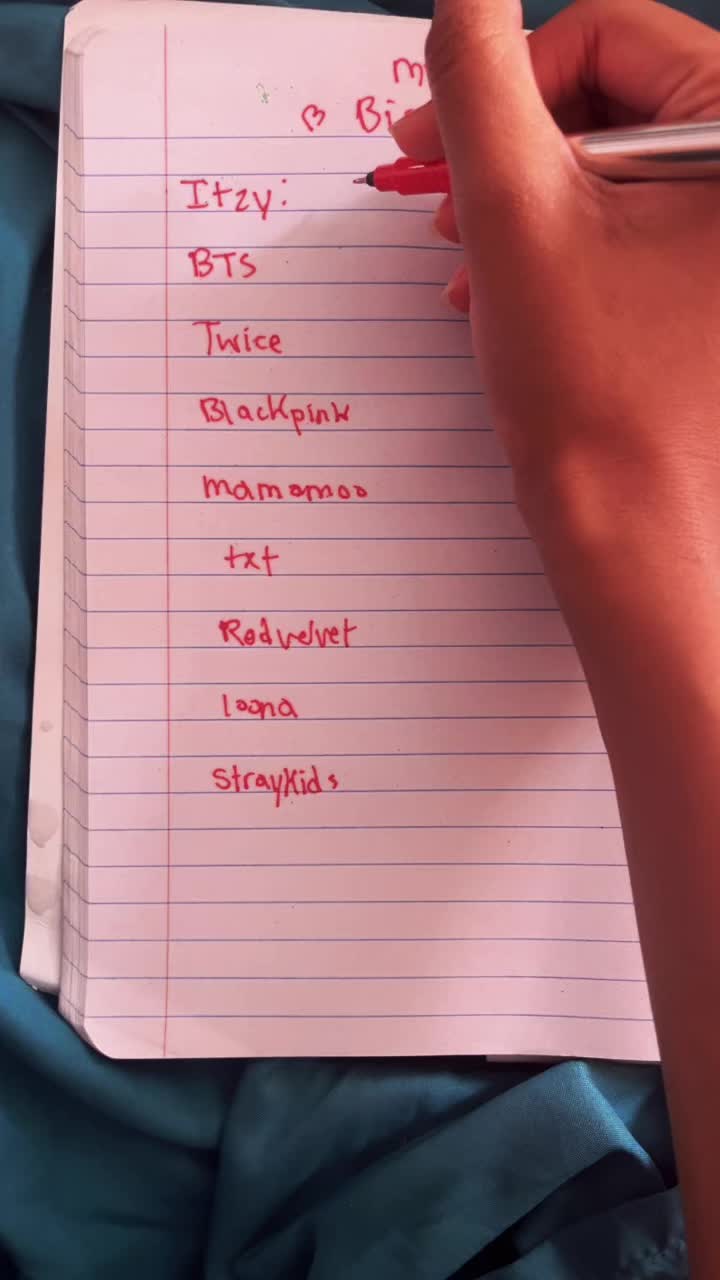 Itzy:
BTS
Twice
Blackpink
mamamoo
txt
Redvelvet
loona
StrayKids